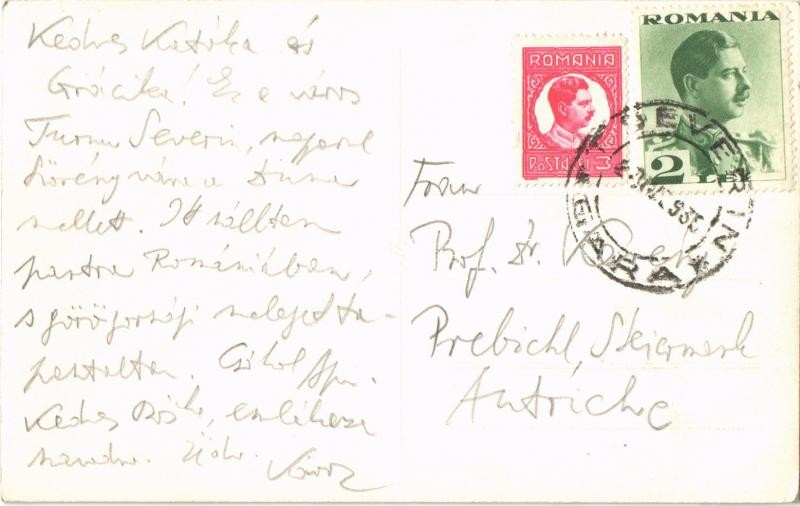 Kedves Katóka és
Grácika! Ez a város
Turnu Severin, magyarul
Szörény vára a Duna
mellett. Itt szálltam
partra Romániában,
s görögországi meleget ta-
pasztaltam. Csókol Apu.
Kedves emlékezz
Üdv.
ROMANIA
POSTA LEI 3
ROMANIA
2 LEI
SEVERIN
GARA
Prof. Dr.
Prebichl, Steiermark
Autriche